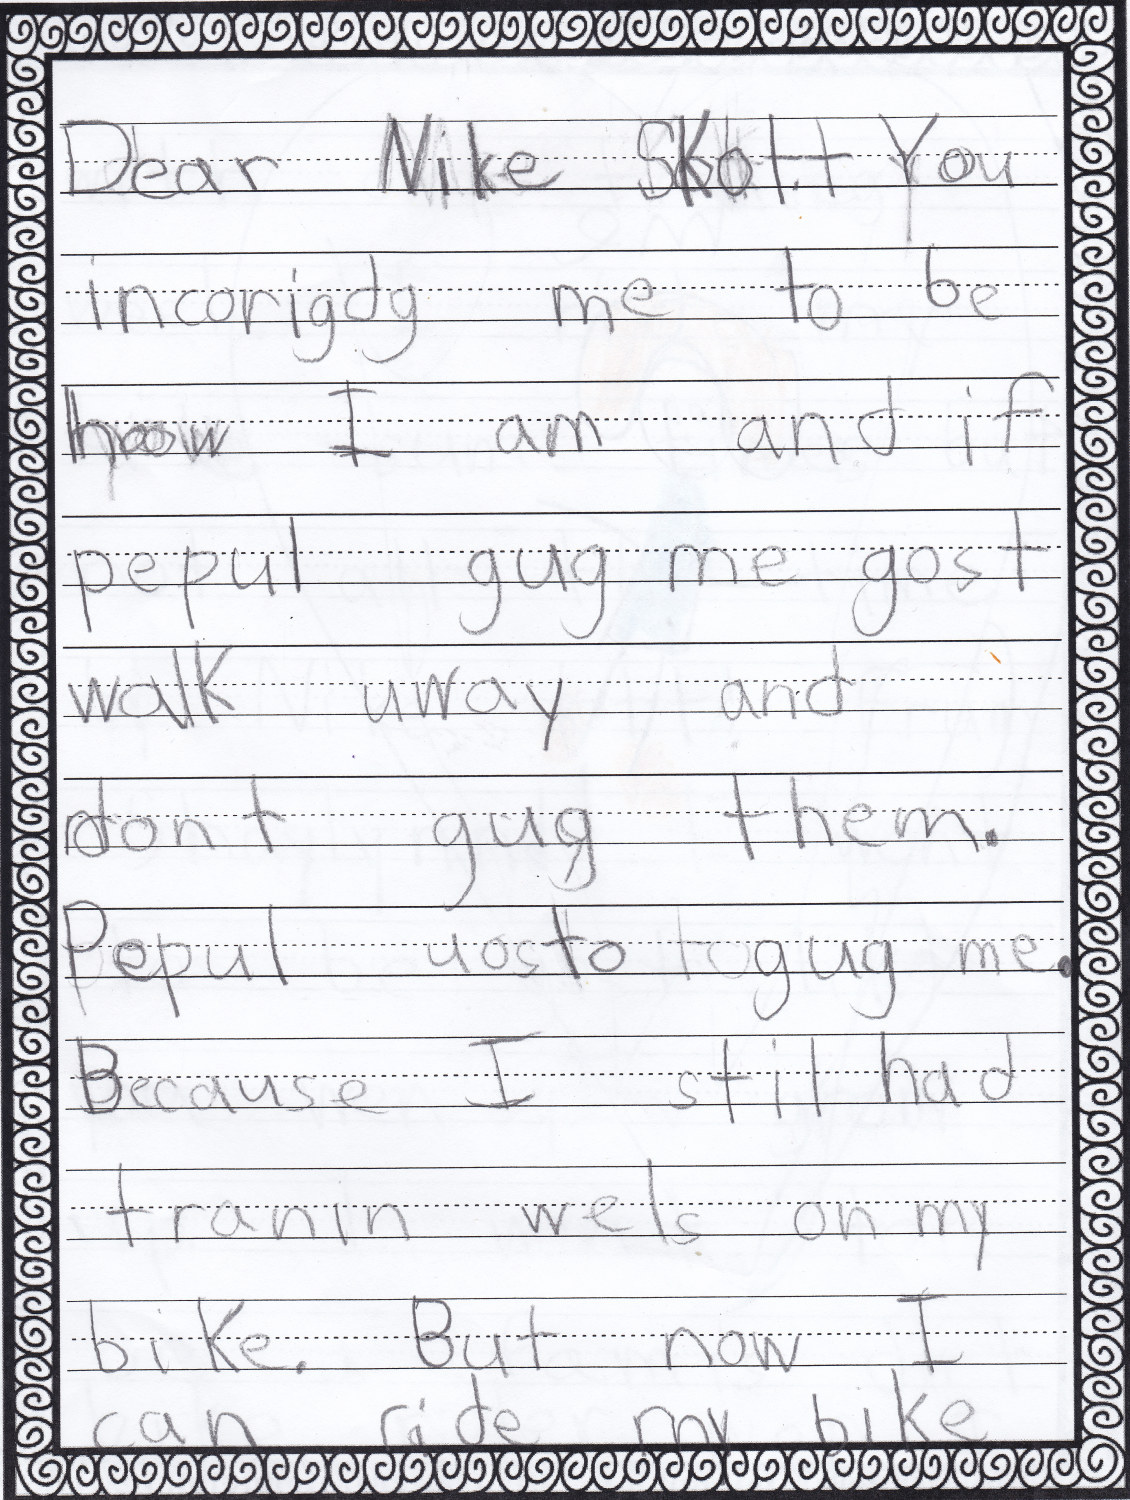 Dear Nike Skott You
incorigdg me to be
how I am and if
pepul gug me gost
walk uway and
dont gug them.
Pepul uosto gug me.
Because I stil had
tranin wels on my
bike. But now I
can ride my bike